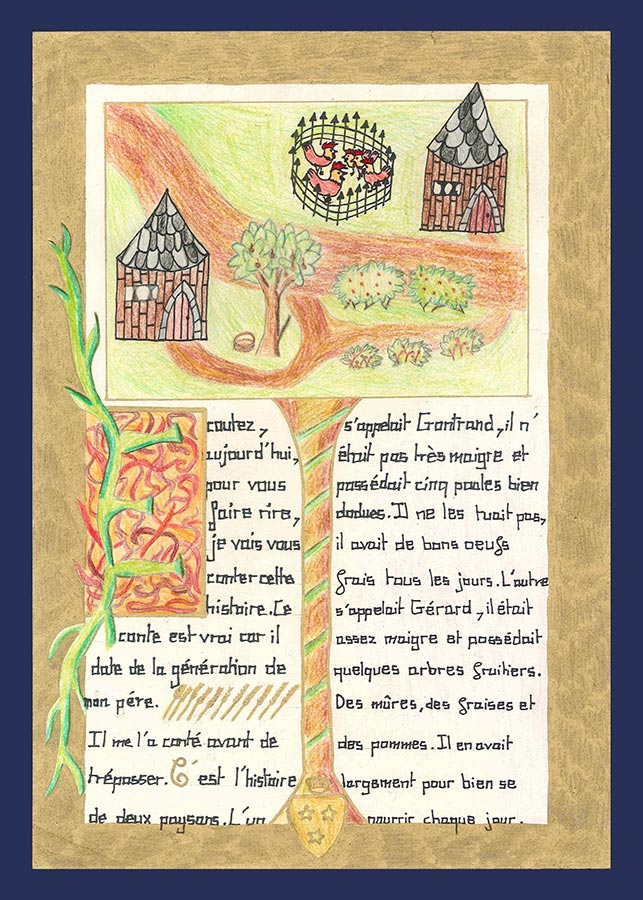 Ecoutez,
aujourd'hui,
pour vous
faire rire,
je vais vous
conter cette
histoire. Ce
conte est vrai car il
date de la génération de
mon père.
Il me l'a conté avant de
trépasser. C'est l'histoire
de deux paysans. L'un
s'appelait Gontrand, il n'
était pas très maigre et
possédait cinq poules bien
dodues. Il ne les tuait pas,
il avait de bons oeufs
frais tous les jours. L'autre
s'appelait Gérard, il était
assez maigre et possédait
quelques arbres fruitiers.
Des mûres, des fraises et
des pommes. Il en avait
largement pour bien se
nourrir chaque jour.